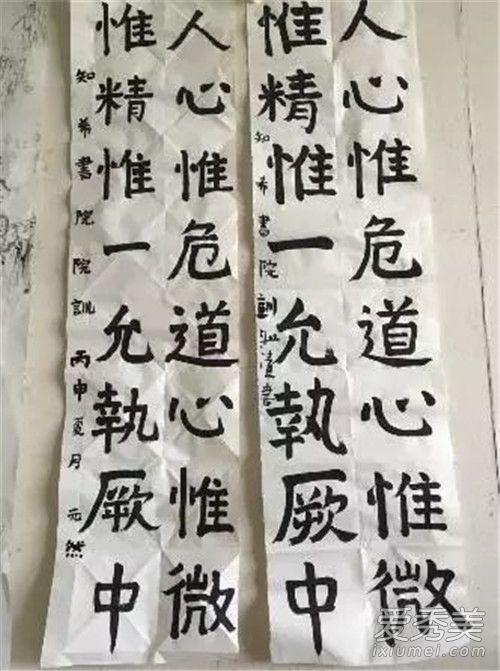 人心惟危道心惟微
惟精惟一允執厥中
知希書院訓
人心惟危道心惟微
惟精惟一允執厥中
知希書院院訓 丙申夏月元然
爱秀美
ixiumei.com